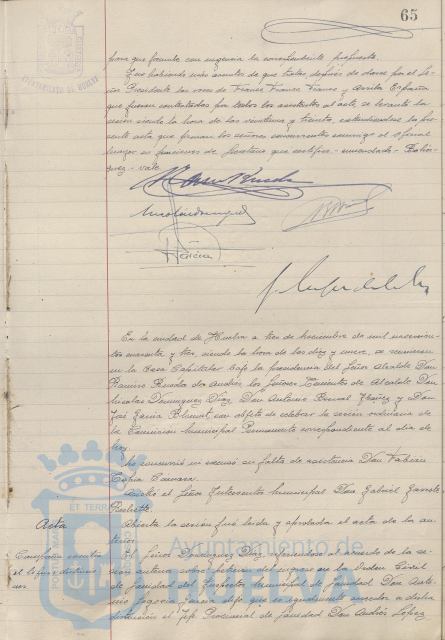 65
AYUNTAMIENTO DE HUELVA
para que formule con urgencia la correspondiente propuesta.
Y no habiendo más asuntos de que tratar después de darse por el Se-
ñor Presidente las voces de Franco Franco Franco y Arriba España
que fueron contestadas por todos los asistentes al acto, se levanta la
sesión siendo la hora de las veintiuna y treinta, extendiéndose la pre-
sente acta que firman los señores concurrentes conmigo el oficial
mayor en funciones de Secretario que certifico - enmendado -
vale
En la ciudad de Huelva a tres de noviembre de mil novecien-
tos cuarenta y tres, siendo la hora de las diez y nueve, se reunieron
en la Casa Capitular bajo la presidencia del Señor Alcalde Don
Ramiro Rueda de Andrés los Señores Tenientes de Alcalde Don
Nicolás Domínguez Díaz, Don Antonio Bernal y Don
José García con objeto de celebrar la sesión ordinaria de
la Comisión municipal Permanente correspondiente al día de
hoy.
No concurrió ni excusó su falta de asistencia Don Fabián
Tapia Camacho.
Asistió el Señor Interventor municipal Don Gabriel
Acta
Abierta la sesión fué leída y aprobada el acta de la an-
terior.
El Señor Domínguez Díaz refiriéndose al acuerdo de la se-
sión anterior sobre el ingreso en la Orden Civil
de Sanidad del Inspector municipal de Sanidad Don Anto-
nio García dijo que es igualmente acreedor a dicha
distinción el Jefe Provincial de Sanidad Don Andrés López
Ayuntamiento de
HUELVA